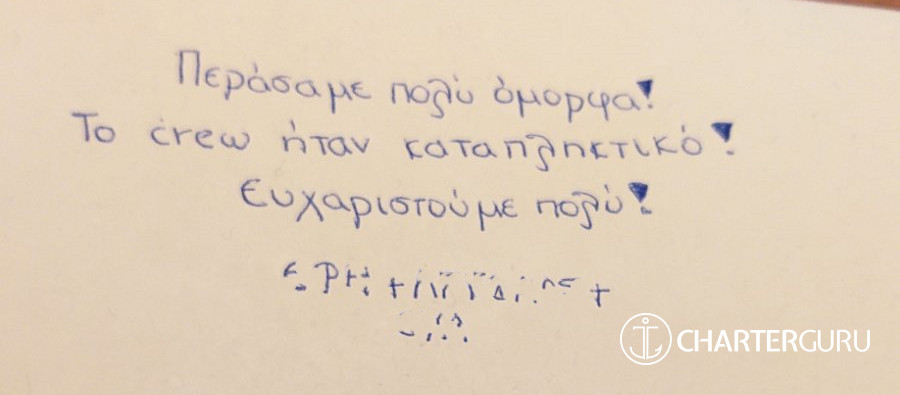 Περάσαμε πολύ όμορφα!
Το crew ήταν καταπληκτικό!
Ευχαριστούμε πολύ!
CHARTERGURU